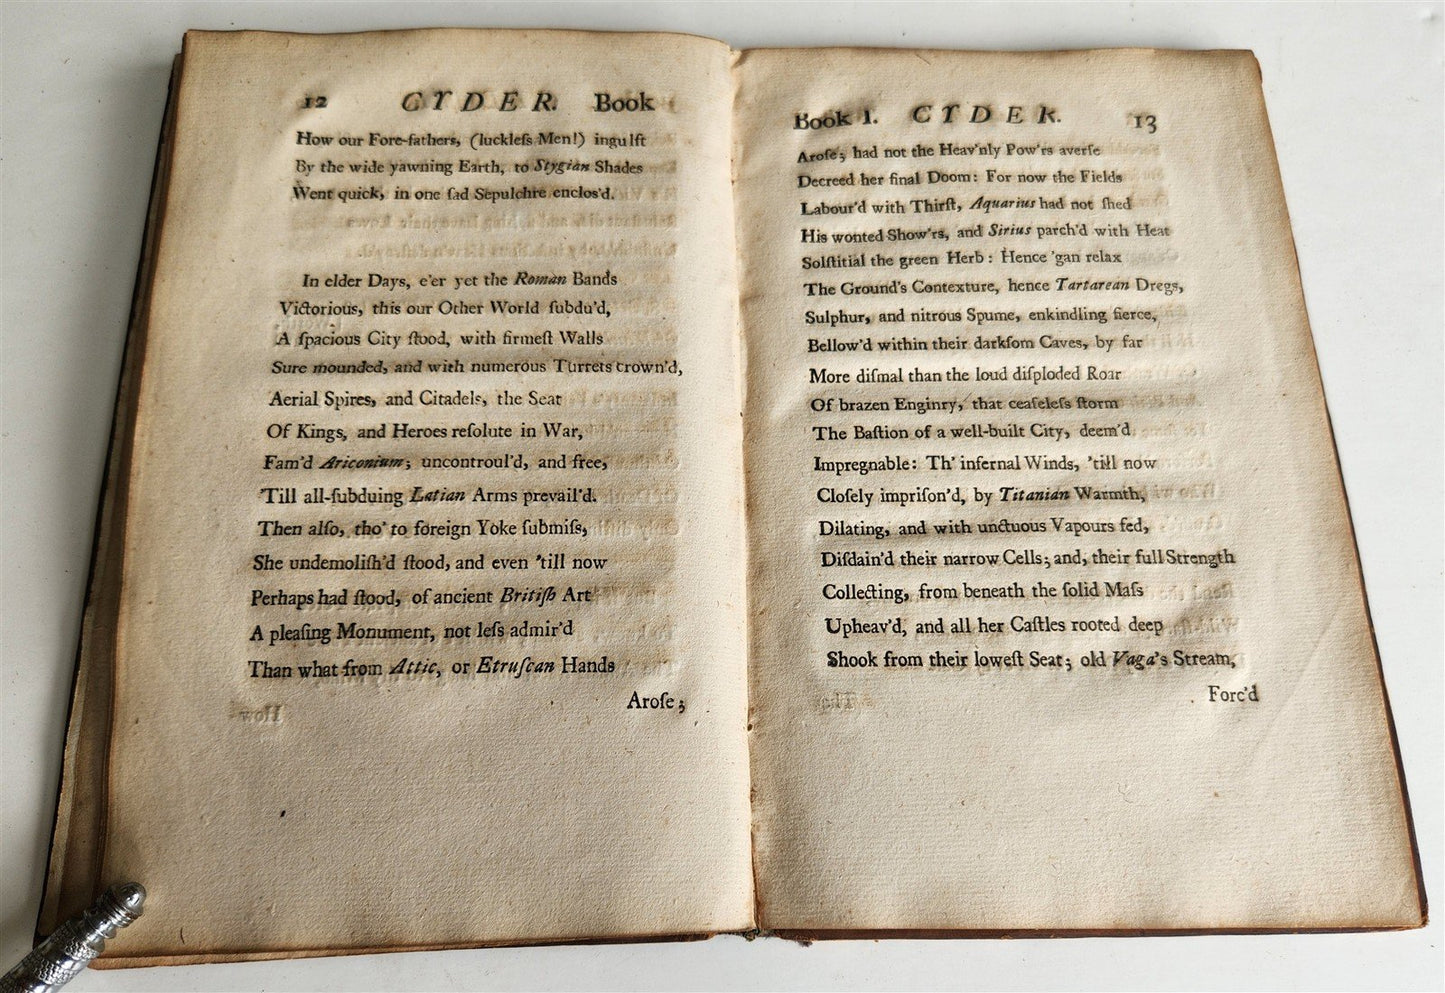 12 CYDER. Book
How our Fore-fathers, (luckleſs Men!) ingulft
By the wide yawning Earth, to Stygian Shades
Went quick, in one ſad Sepulchre enclos'd.
In elder Days, e'er yet the Roman Bands
Victorious, this our Other World ſubdu'd,
A ſpacious City ſtood, with firmeſt Walls
Sure mounded, and with numerous Turrets crown'd,
Aerial Spires, and Citadels, the Seat
Of Kings, and Heroes reſolute in War,
Fam'd Ariconium; uncontroul'd, and free,
'Till all-ſubduing Latian Arms prevail'd.
Then alſo, tho' to foreign Yoke ſubmiſs,
She undemoliſh'd ſtood, and even 'till now
Perhaps had ſtood, of ancient Britiſh Art
A pleaſing Monument, not leſs admir'd
Than what from Attic, or Etruſcan Hands
Aroſe;
Book I. CYDER. 13
Aroſe; had not the Heav'nly Pow'rs averſe
Decreed her final Doom: For now the Fields
Labour'd with Thirſt, Aquarius had not ſhed
His wonted Show'rs, and Sirius parch'd with Heat
Solſtitial the green Herb: Hence 'gan relax
The Ground's Contexture, hence Tartarean Dregs,
Sulphur, and nitrous Spume, enkindling fierce,
Bellow'd within their darkſom Caves, by far
More diſmal than the loud diſploded Roar
Of brazen Enginry, that ceaſeleſs ſtorm
The Baſtion of a well-built City, deem'd
Impregnable: Th' infernal Winds, 'till now
Cloſely impriſon'd, by Titanian Warmth,
Dilating, and with unctuous Vapours fed,
Diſdain'd their narrow Cells; and, their full Strength
Collecting, from beneath the ſolid Maſs
Upheav'd, and all her Caſtles rooted deep
Shook from their loweſt Seat; old Vaga's Stream,
Forc'd